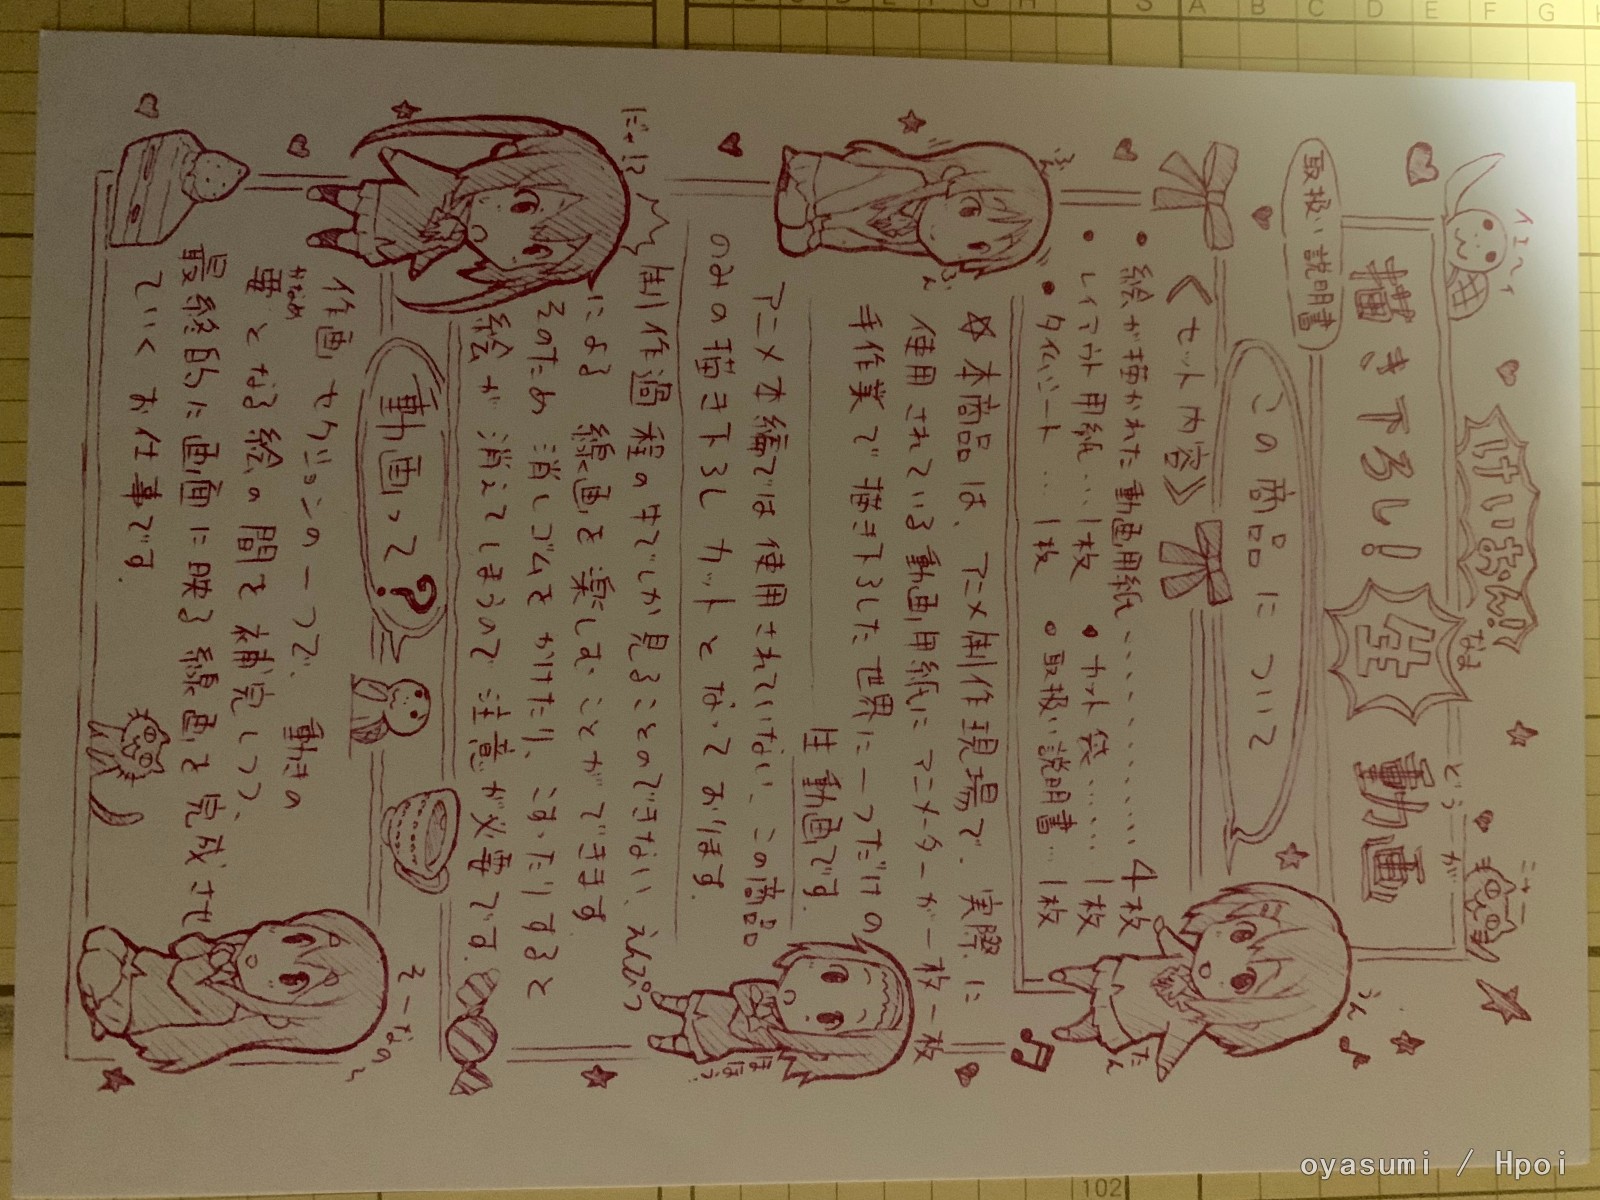 けいおん!!
取扱い説明書
描き下ろし!
生
なま
動画
どうが
イエーイ
ニャー
この商品について
うん
たん
《セット内容》
• 絵が描かれた動画用紙 ………… 4枚
• レイアウト用紙…1枚 • カット袋……1枚
• タイムシート…1枚 • 取扱い説明書…1枚
☆本商品は、アニメ制作現場で、実際に
使用されている動画用紙にアニメーターが一枚一枚
手作業で描き下ろした世界に一つだけの
生動画です。
アニメ本編では使用されていない、この商品
のみの描き下ろしカットとなっております。
にゃ!?
制作過程の中でしか見ることのできない、えんぴつ
による線画を楽しむことができます
そのため消しゴムをかけたり、こすったりすると
絵が消えてしまうので注意が必要です。
動画って?
そーなの〜
作画セクションの一つで、動きの
要となる絵の間を補完しつつ、
かなめ
最終的に画面に映る線画を完成させ
ていくお仕事です。
102
oyasumi / Hpoi